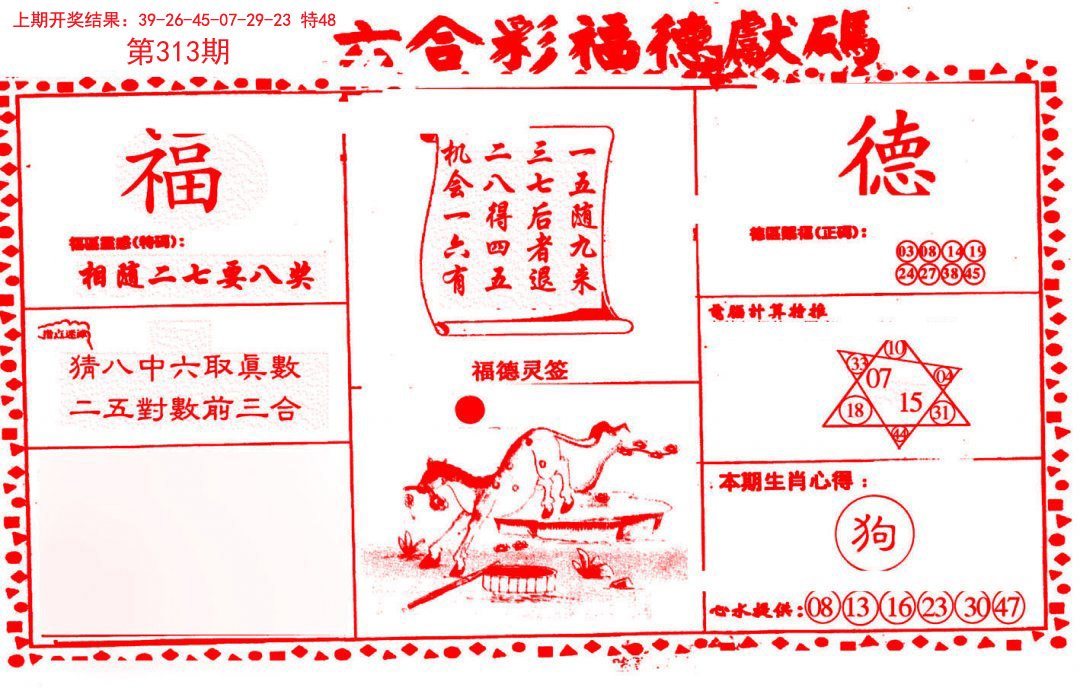 上期开奖结果：39-26-45-07-29-23 特48
第313期
六合彩福德獻碼
福
福區靈感(特碼)：
相随二七要八奖
指点迷津
猜八中六取眞數
二五對數前三合
一五随九来
三七后者退
二八得四五
机会一六有
福德灵签
德
德區賜福(正碼)：
03 08 14 19
24 27 38 45
電腦計算特推
10
33 07 04
18 15 31
44
本期生肖心得：
狗
心水提供：08 13 16 23 30 47